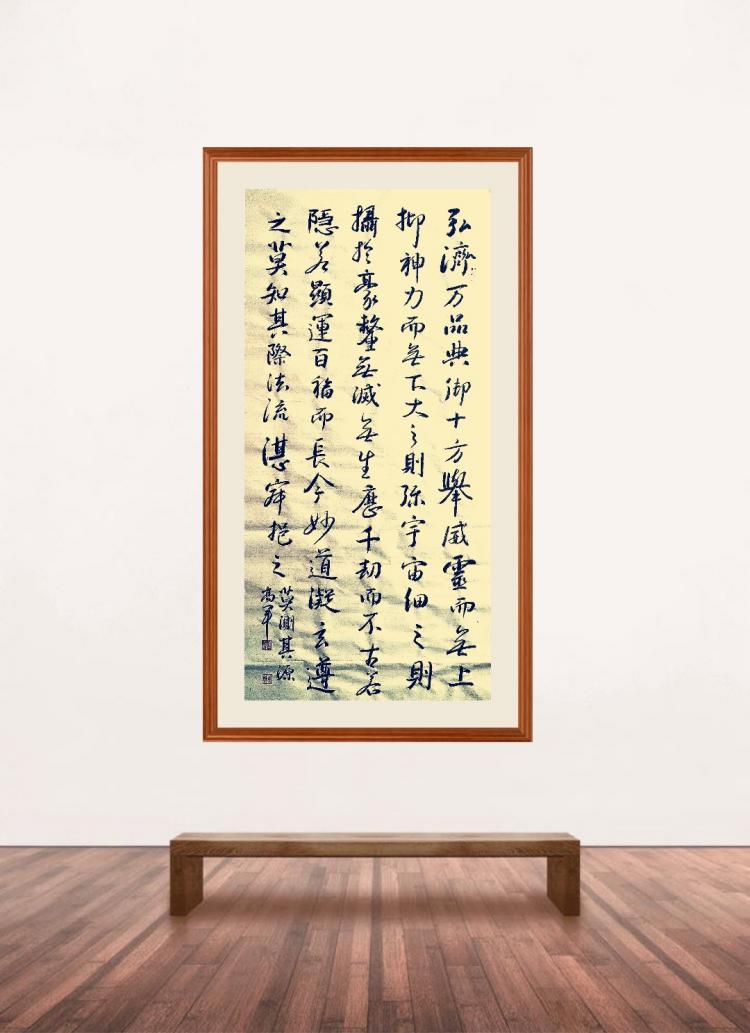 弘濟万品典御十方舉威靈而無上
抑神力而無下大之則弥宇宙細之則
攝於豪釐無滅無生歷千劫而不古若
隱若顯運百福而長今妙道凝玄遵
之莫知其際法流湛寂挹之
莫測其源
高軍